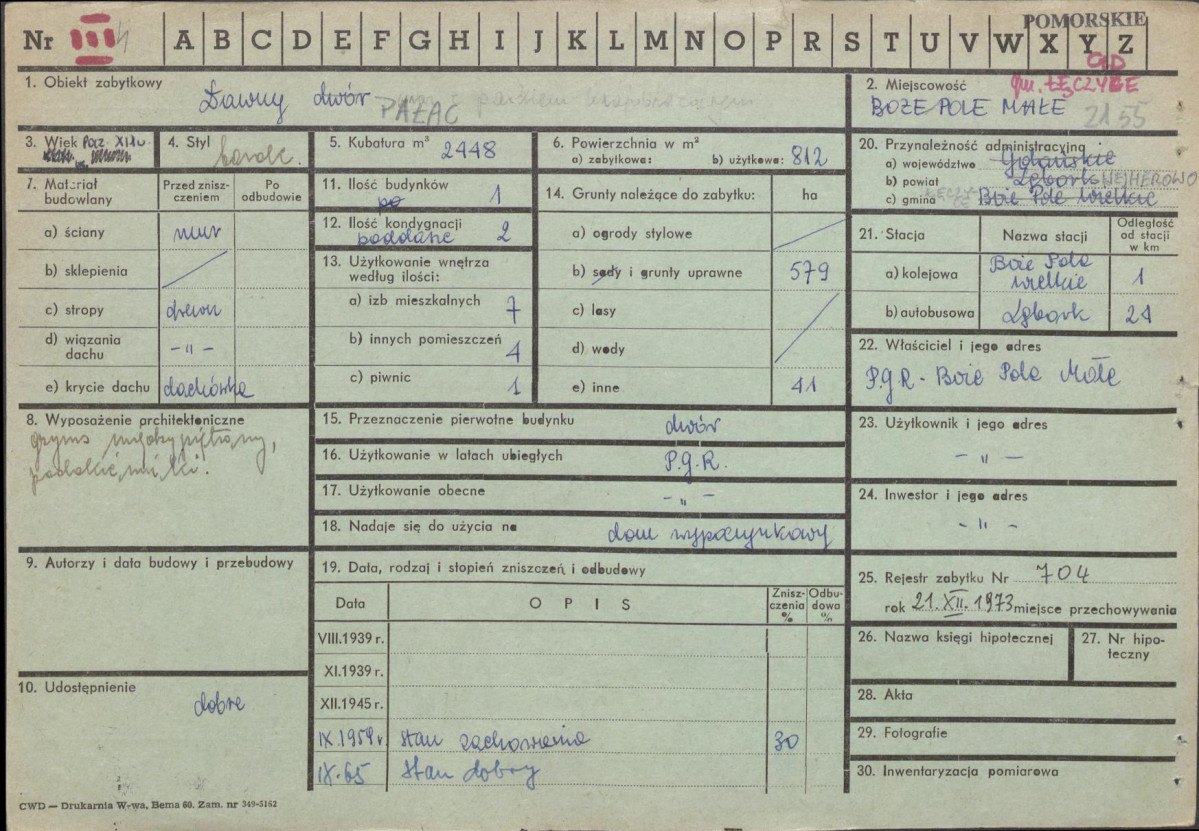 POMORSKIE
Nr III 4 A B C D E F G H I J K L M N O P R S T U V W X Y Z
1. Obiekt zabytkowy
Dawny dwór
PAŁAC
2. Miejscowość
gm. ŁĘCZYCE
BOŻE POLE MAŁE 2155
3. Wiek Pocz. XIX w.
4. Styl
barok.
5. Kubatura m³ 2448
6. Powierzchnia w m²
a) zabytkowa: b) użytkowa: 812
20. Przynależność administracyjna
a) województwo Gdańskie
b) powiat Lębork WEJHEROWO
c) gmina ŁĘCZYCE Boże Pole Wielkie
7. Materiał budowlany
Przed zniszczeniem
Po odbudowie
a) ściany mur
b) sklepienia
c) stropy drewn
d) wiązania dachu -"-
e) krycie dachu dachówka
11. Ilość budynków 1
12. Ilość kondygnacji 2
poddasze
13. Użytkowanie wnętrza
według ilości:
a) izb mieszkalnych 7
b) innych pomieszczeń 4
c) piwnic 1
14. Grunty należące do zabytku: ha
a) ogrody stylowe
b) sady i grunty uprawne 579
c) lasy
d) wody
e) inne 41
21. Stacja
Nazwa stacji
Odległość od stacji w km
a) kolejowa Boże Pole Wielkie 1
b) autobusowa Lębork 21
22. Właściciel i jego adres
P.G.R - Boże Pole Małe
8. Wyposażenie architektoniczne
gzyms międzypiętrowy,
15. Przeznaczenie pierwotne budynku dwór
16. Użytkowanie w latach ubiegłych P.G.R.
17. Użytkowanie obecne -"-
18. Nadaje się do użycia na dom wypoczynkowy
23. Użytkownik i jego adres
-"-
24. Inwestor i jego adres
-"-
9. Autorzy i data budowy i przebudowy
19. Data, rodzaj i stopień zniszczeń i odbudowy
Data
OPIS
Zniszczenia %
Odbudowa %
VIII.1939 r.
XI.1939 r.
XII.1945 r.
IX.1959 r. stan zachowania 30
IX.65 stan dobry
25. Rejestr zabytku Nr 704
rok 21.XII.1973 miejsce przechowywania
26. Nazwa księgi hipotecznej
27. Nr hipoteczny
10. Udostępnienie
dobre
28. Akta
29. Fotografie
30. Inwentaryzacja pomiarowa
CWD — Drukarnia W-wa, Bema 60. Zam. nr 349-5162